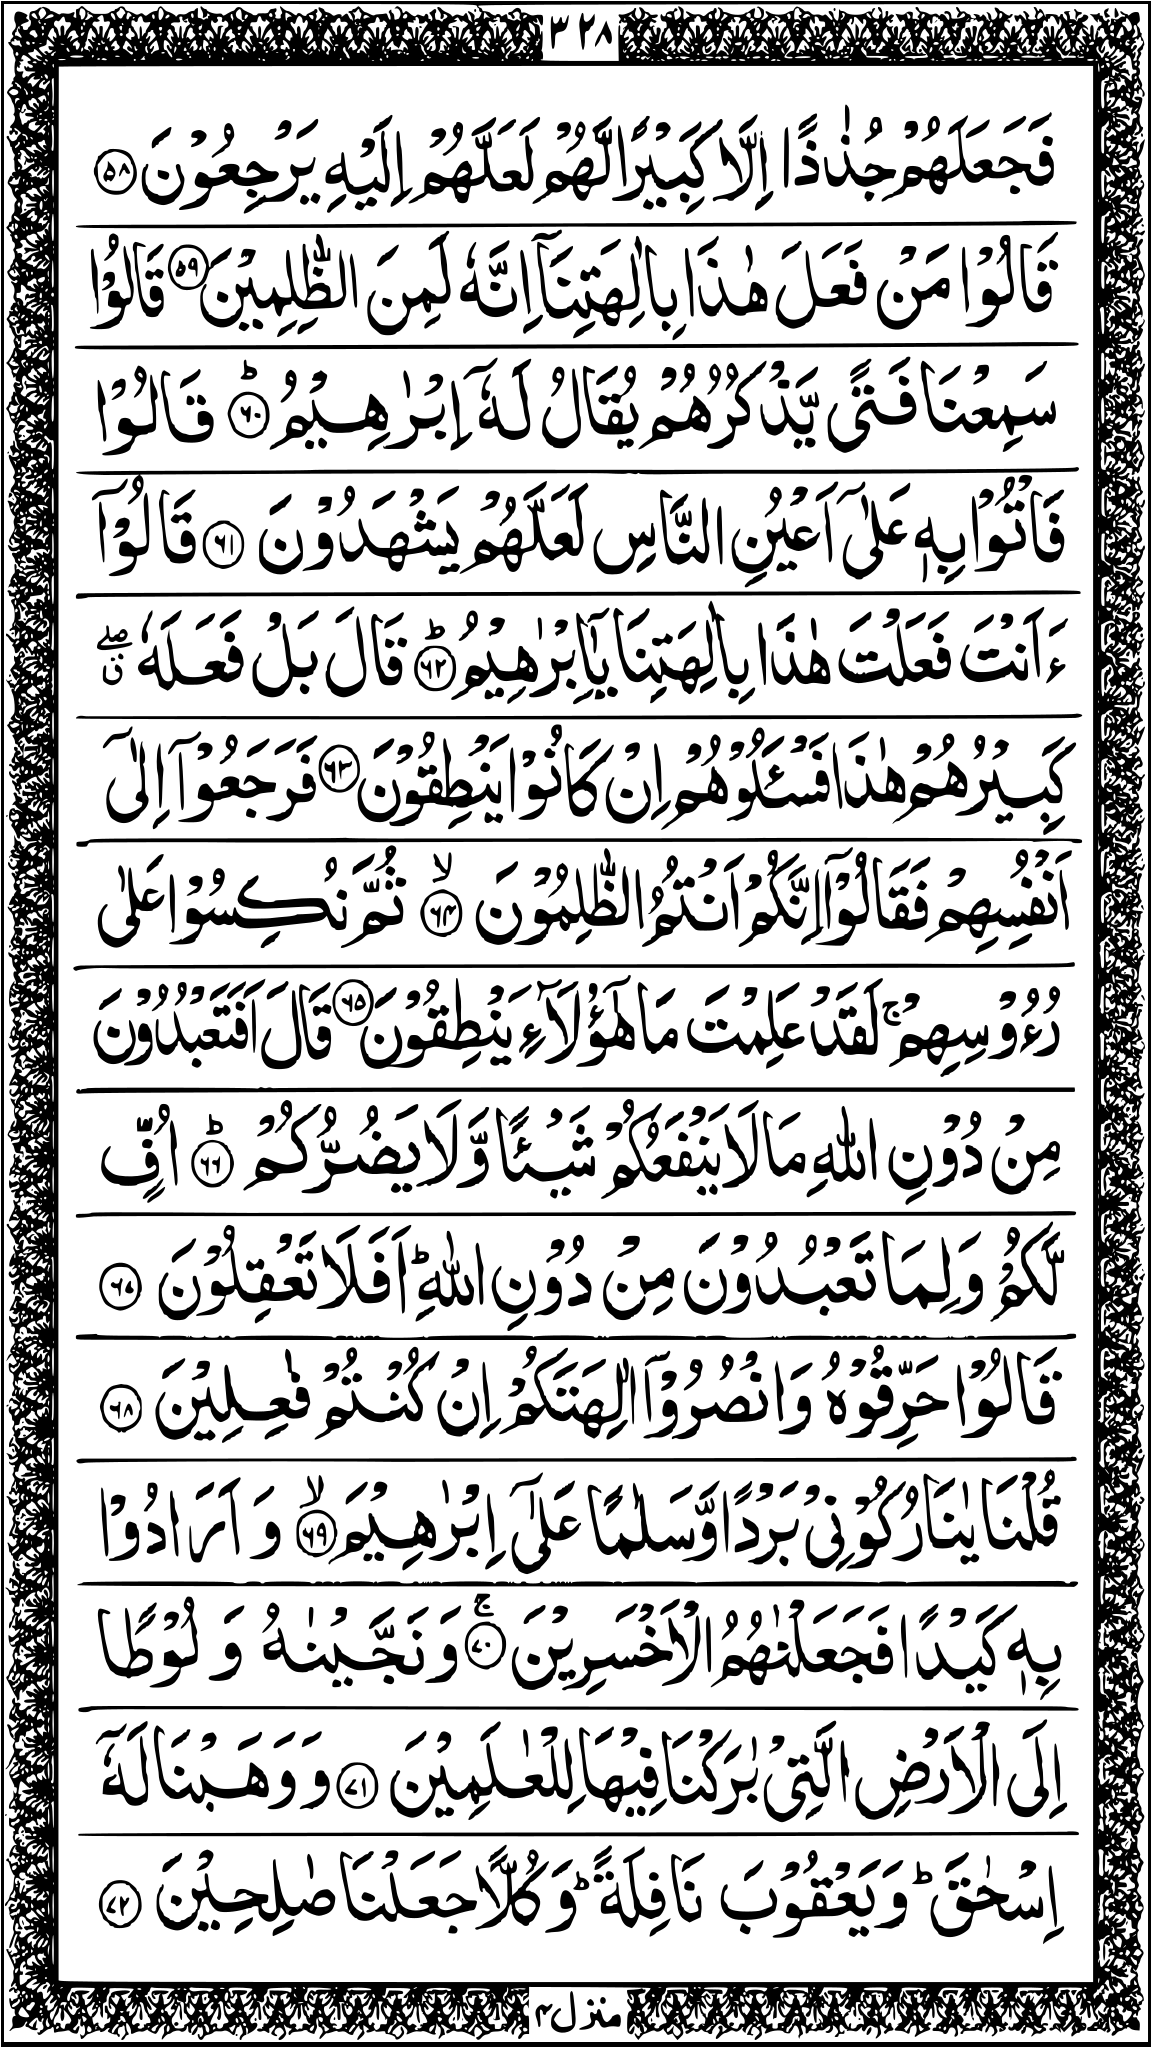 ٣٢٨
فَجَعَلَهُمْ جُذٰذًا اِلَّا كَبِيْرًا لَّهُمْ لَعَلَّهُمْ اِلَيْهِ يَرْجِعُوْنَ ﴿۵۸﴾
قَالُوْا مَنْ فَعَلَ هٰذَا بِاٰلِهَتِنَاۤ اِنَّهٗ لَمِنَ الظّٰلِمِيْنَ ﴿۵۹﴾ قَالُوْا
سَمِعْنَا فَتًى يَّذْكُرُهُمْ يُقَالُ لَهٗۤ اِبْرٰهِيْمُ ؕ﴿۶۰﴾ قَالُوْا
فَاْتُوْا بِهٖ عَلٰۤى اَعْيُنِ النَّاسِ لَعَلَّهُمْ يَشْهَدُوْنَ ﴿۶۱﴾ قَالُوْۤا
ءَاَنْتَ فَعَلْتَ هٰذَا بِاٰلِهَتِنَا يٰۤاِبْرٰهِيْمُ ؕ﴿۶۲﴾ قَالَ بَلْ فَعَلَهٗ ۖ ق
كَبِيْرُهُمْ هٰذَا فَسْـَٔلُوْهُمْ اِنْ كَانُوْا يَنْطِقُوْنَ ﴿۶۳﴾ فَرَجَعُوْۤا اِلٰۤى
اَنْفُسِهِمْ فَقَالُوْۤا اِنَّكُمْ اَنْتُمُ الظّٰلِمُوْنَ ۙ﴿۶۴﴾ ثُمَّ نُكِسُوْا عَلٰى
رُءُوْسِهِمْ ۚ لَقَدْ عَلِمْتَ مَا هٰۤؤُلَآءِ يَنْطِقُوْنَ ﴿۶۵﴾ قَالَ اَفَتَعْبُدُوْنَ
مِنْ دُوْنِ اللّٰهِ مَا لَا يَنْفَعُكُمْ شَيْـًٔا وَّلَا يَضُرُّكُمْ ؕ﴿۶۶﴾ اُفٍّ
لَّكُمْ وَلِمَا تَعْبُدُوْنَ مِنْ دُوْنِ اللّٰهِ ؕ اَفَلَا تَعْقِلُوْنَ ﴿۶۷﴾
قَالُوْا حَرِّقُوْهُ وَانْصُرُوْۤا اٰلِهَتَكُمْ اِنْ كُنْتُمْ فٰعِلِيْنَ ﴿۶۸﴾
قُلْنَا يٰنَارُ كُوْنِيْ بَرْدًا وَّسَلٰمًا عَلٰۤى اِبْرٰهِيْمَ ۙ﴿۶۹﴾ وَ اَرَادُوْا
بِهٖ كَيْدًا فَجَعَلْنٰهُمُ الْاَخْسَرِيْنَ ۚ﴿۷۰﴾ وَ نَجَّيْنٰهُ وَ لُوْطًا
اِلَى الْاَرْضِ الَّتِيْ بٰرَكْنَا فِيْهَا لِلْعٰلَمِيْنَ ﴿۷۱﴾ وَ وَهَبْنَا لَهٗۤ
اِسْحٰقَ ؕ وَ يَعْقُوْبَ نَافِلَةً ؕ وَ كُلًّا جَعَلْنَا صٰلِحِيْنَ ﴿۷۲﴾
منزل۴